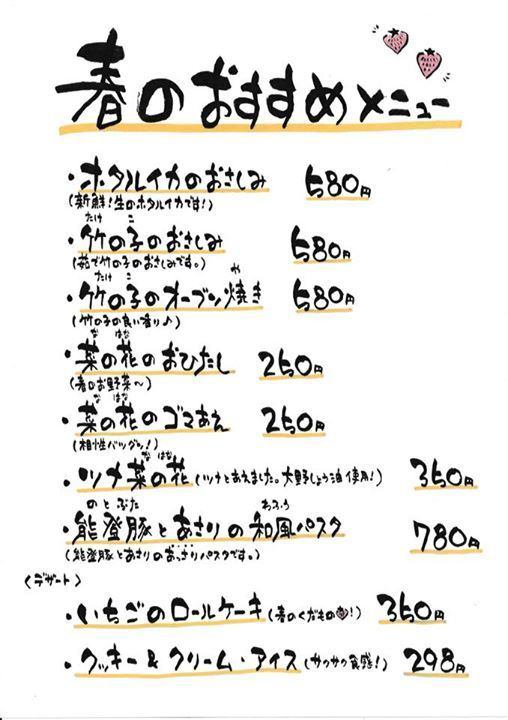 春のおすすめメニュー
・ホタルイカのおさしみ 580円
(新鮮!生のホタルイカです!)
たけ こ
・竹の子のおさしみ 580円
(茹で竹の子のおさしみです。)
たけ こ や
・竹の子のオーブン焼き 580円
(竹の子の良い香り♪)
な はな
・菜の花のおひたし 250円
(春のお野菜〜)
な はな
・菜の花のゴマあえ 250円
(相性バツグン!)
な はな
・ツナ菜の花(ツナとあえました。大野しょう油使用!) 350円
のとぶた わふう
・能登豚とあさりの和風パスタ 780円
(能登豚とあさりのあっさりパスタです。)
〈デザート〉
・いちごのロールケーキ(春のくだもの!) 350円
・クッキー&クリーム・アイス(サクサク食感!) 298円